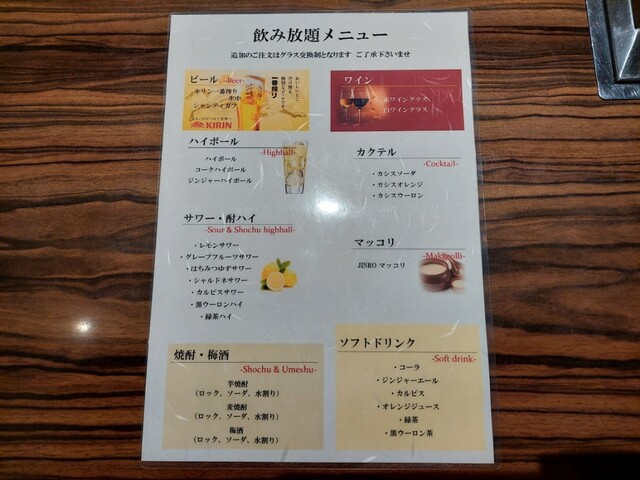 飲み放題メニュー
追加のご注文はグラス交換制となります ご了承下さいませ
ビール -Beer-
キリン一番搾り
生中
シャンディガフ
KIRIN
一番搾り
ワイン
赤ワイングラス
白ワイングラス
ハイボール
-Highball-
ハイボール
コークハイボール
ジンジャーハイボール
カクテル
-Cocktail-
・カシスソーダ
・カシスオレンジ
・カシスウーロン
サワー・酎ハイ
-Sour & Shochu highball-
・レモンサワー
・グレープフルーツサワー
・はちみつゆずサワー
・シャルドネサワー
・カルピスサワー
・黒ウーロンハイ
・緑茶ハイ
マッコリ
-Makgeolli-
JINRO マッコリ
焼酎・梅酒
-Shochu & Umeshu-
芋焼酎
(ロック、ソーダ、水割り)
麦焼酎
(ロック、ソーダ、水割り)
梅酒
(ロック、ソーダ、水割り)
ソフトドリンク
-Soft drink-
・コーラ
・ジンジャーエール
・カルピス
・オレンジジュース
・緑茶
・黒ウーロン茶